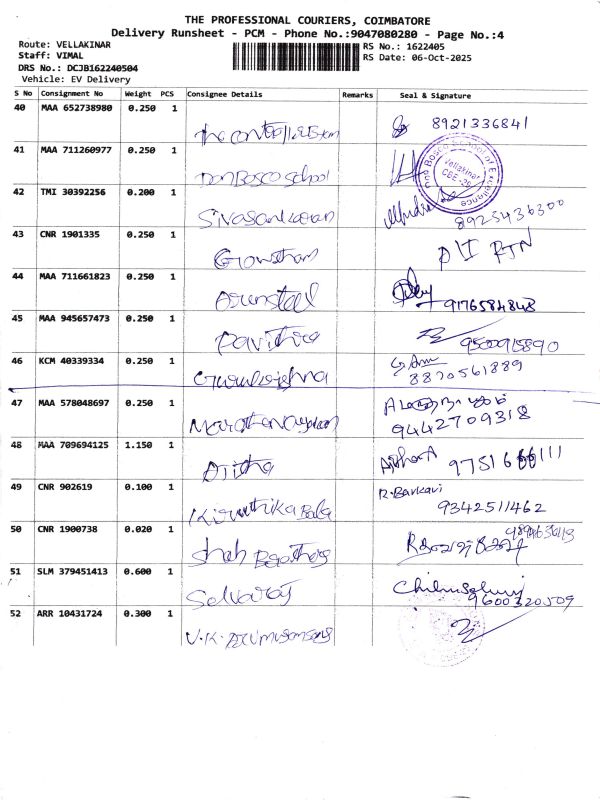 THE PROFESSIONAL COURIERS, COIMBATORE
Delivery Runsheet - PCM - Phone No.:9047080280 - Page No.:4
Route: VELLAKINAR
Staff: VIMAL
DRS No.: DCJB162240504
Vehicle: EV Delivery
RS No.: 1622405
RS Date: 06-Oct-2025
S No Consignment No Weight PCS Consignee Details Remarks Seal & Signature
40 MAA 652738980 0.250 1 The 8921336841
41 MAA 711260977 0.250 1 Don Bosco School
Don Bosco School of Excellence
Vellakinar
CBE-29
42 TMI 30392256 0.200 1 Sivasankaran 8925436300
43 CNR 1901335 0.250 1 Gowtham
44 MAA 711661823 0.250 1 9176584848
45 MAA 945657473 0.250 1 Pavithra 9500915890
46 KCM 40339334 0.250 1 8870561889
47 MAA 578048697 0.250 1 9442709318
48 MAA 709694125 1.150 1 Ajitha
49 CNR 902619 0.100 1 Kiruthika Bala R. Barkavi 9342511462
50 CNR 1900738 0.020 1 Shah
51 SLM 379451413 0.600 1 Selvaraj 9600320509
52 ARR 10431724 0.300 1 V.K.